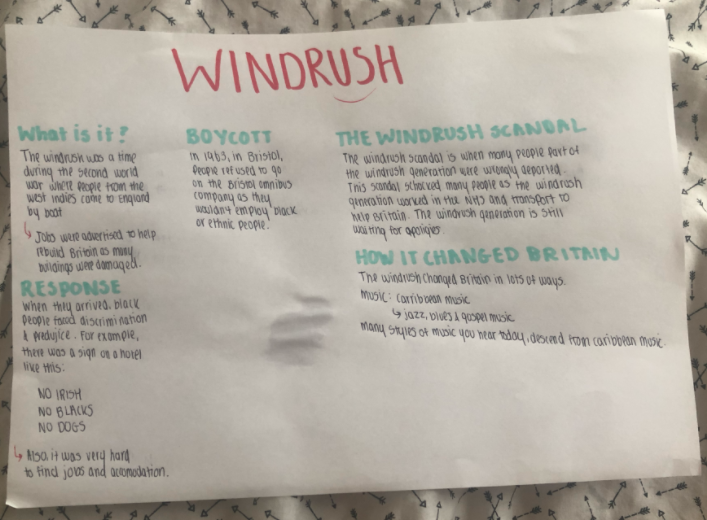 WINDRUSH
What is it?
The windrush was a time
during the second world
war where people from the
west indies came to England
by boat
↳ Jobs were advertised to help
rebuild Britain as many
buildings were damaged.
RESPONSE
When they arrived, black
people faced discrimination
& predujice. For example,
there was a sign on a hotel
like this:
NO IRISH
NO BLACKS
NO DOGS
↳ Also it was very hard
to find jobs and accomodation.
BOYCOTT
In 1963, in Bristol,
people refused to go
on the Bristol omnibus
company as they
wouldn't employ black
or ethnic people.
THE WINDRUSH SCANDAL
The windrush scandal is when many people part of
the windrush generation were wrongly deported.
This scandal schocked many people as the windrush
generation worked in the NHS and transport to
help Britain. The windrush generation is still
waiting for apoligies.
HOW IT CHANGED BRITAIN
The windrush changed Britain in lots of ways.
music: carribean music
↳ jazz, blues & gospel music
many styles of music you hear today, descend from caribbean music